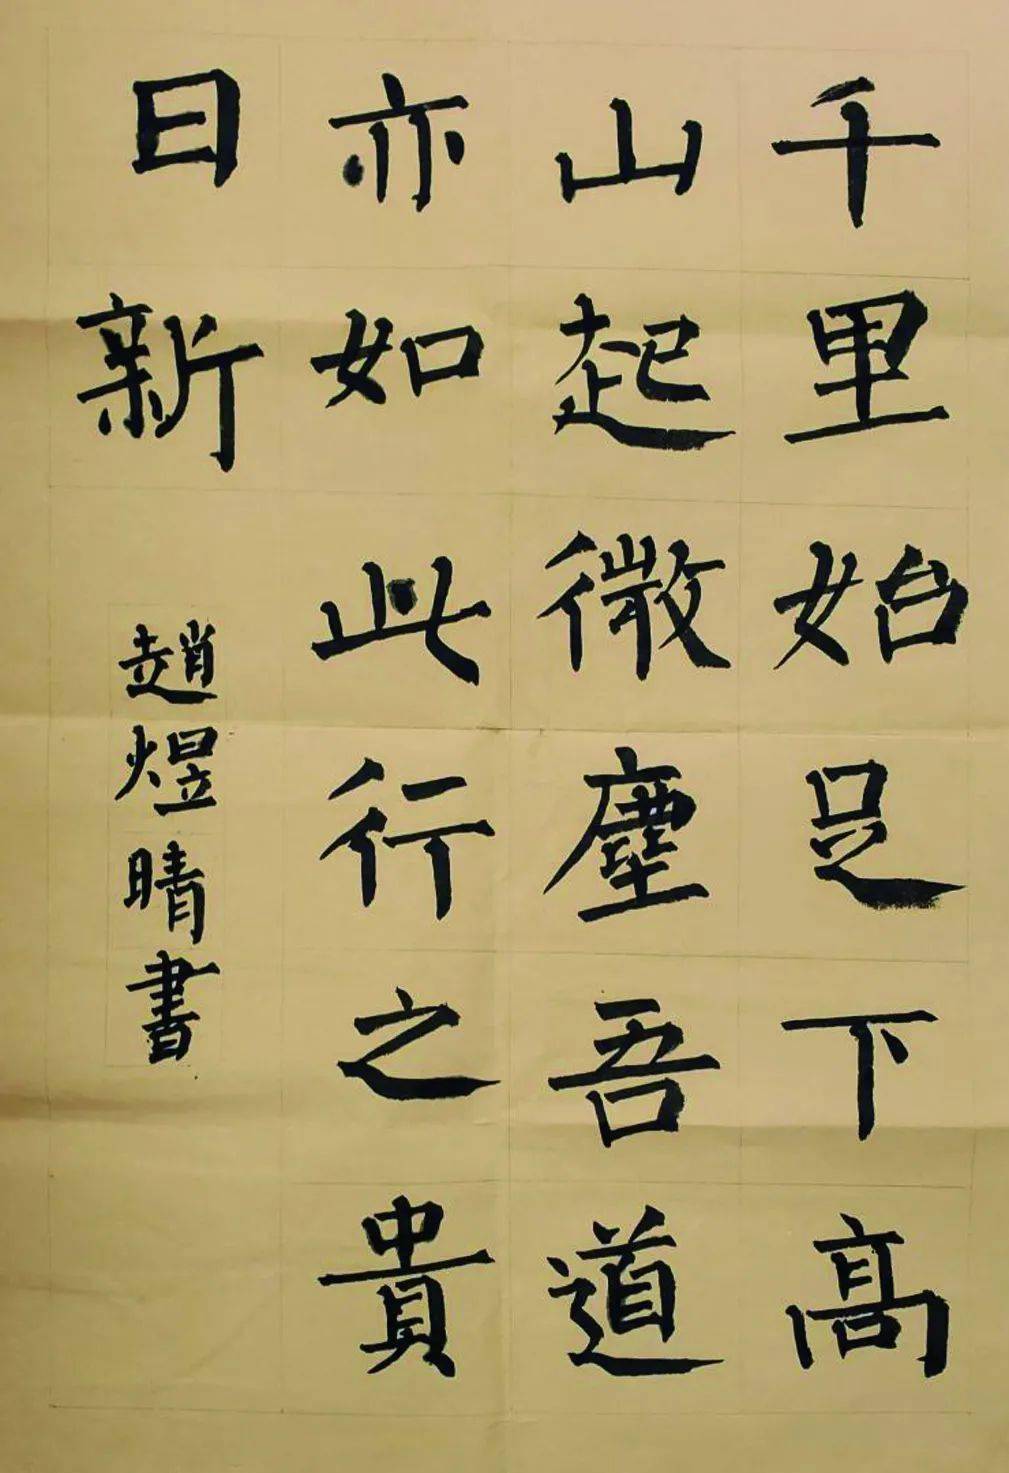 千里始足下高
山起微塵吾道
亦如此行之貴
日新
趙煜晴書